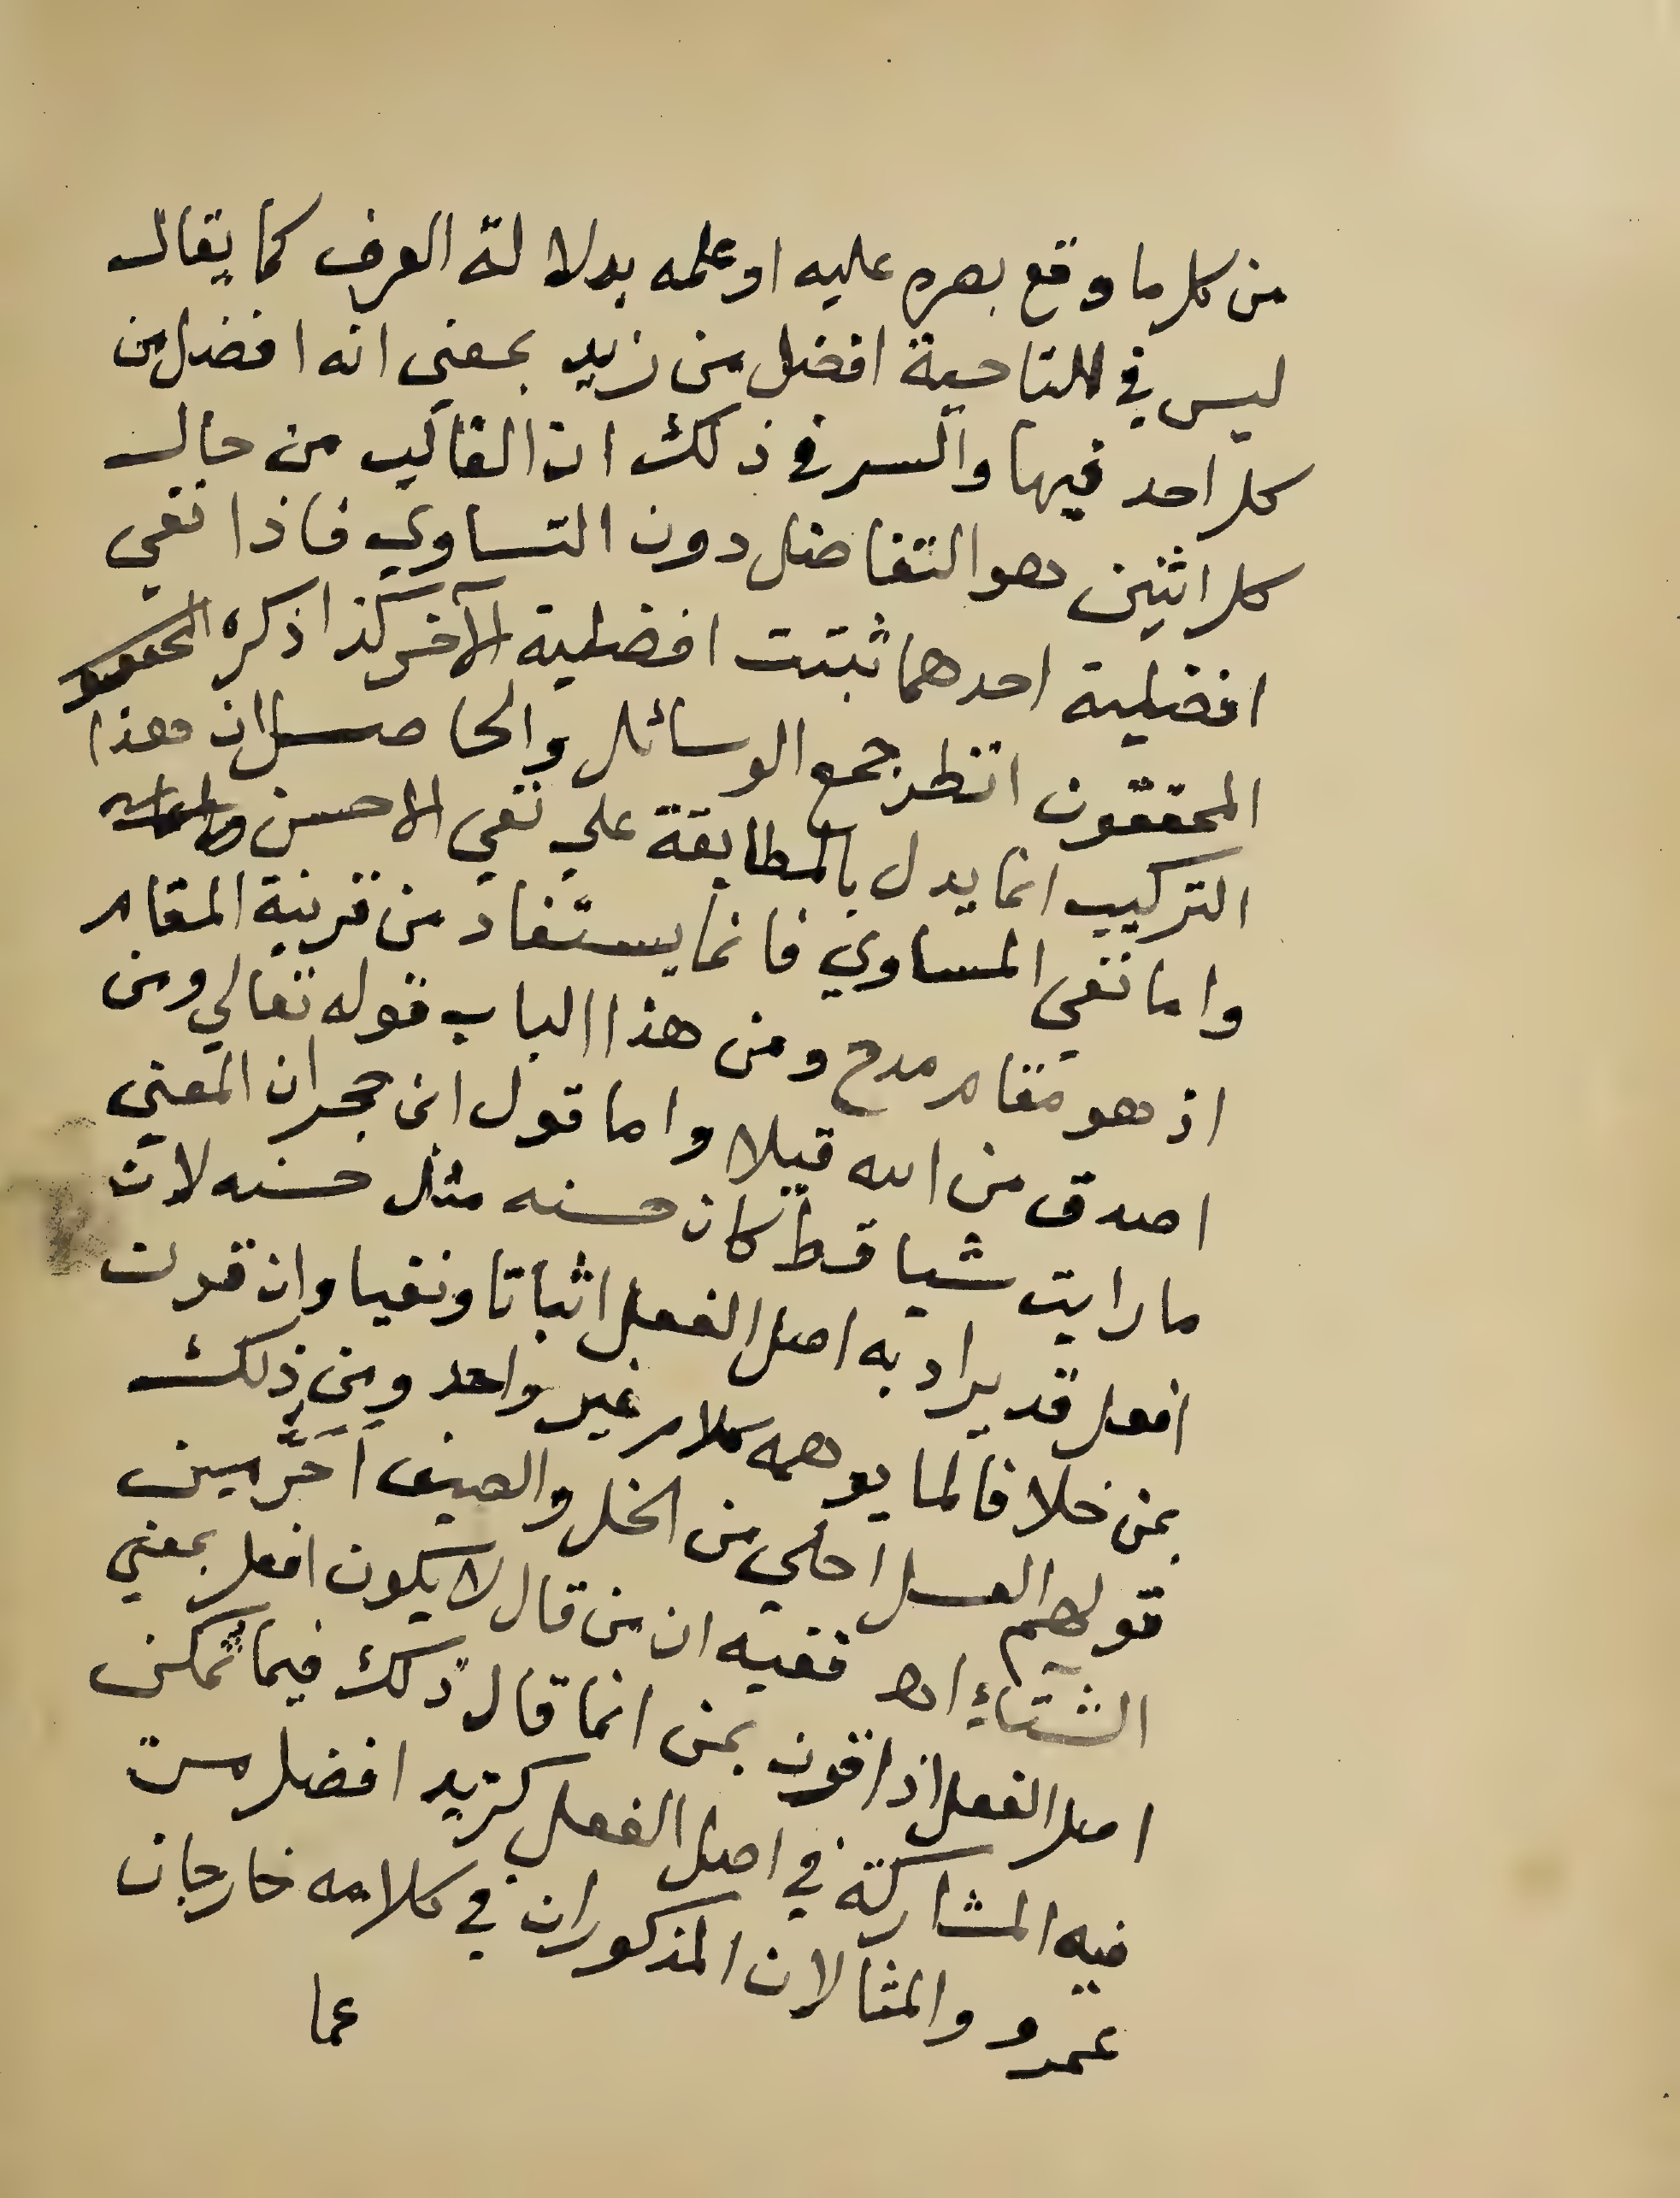 من كل ما وقع بصره عليه او علمه بدلالة العرف كما يقال
ليس في الناحية افضل من زيد بمعني انه افضل من
كل احد فيها والسر في ذلك ان الغالب من حال
كل اثنين هو التفاضل دون التساوي فاذا نفي
افضلية احدهما ثبتت افضلية الآخر كذا ذكره
المحققون انظر جمع الوسائل والحاصل ان هذا
التركيب انما يدل بالمطابقة علي نفي الاحسن
واما نفي المساوي فانما يستفاد من قرينة المقام
اذ هو مقام مدح ومن هذا الباب قوله تعالي ومن
اصدق من الله قيلا واما قول ابن حجر ان المعني
ما رايت شيا قط كان حسنه مثل حسنه لان
افعل قد يراد به اصل الفعل اثباتا ونفيا وان قرنت
بمن خلافا لما يوهمه كلام غير واحد ومن ذلك
قولهم العسل احلي من الخل والصيف اَحَرُّ من
الشتاءِ اه ففيه ان من قال لا يكون افعل بمعني
اصل الفعل اذا قرن بمن انما قال ذلك فيما تمكن
فيه المشاركة في اصل الفعل كزيد افضل من
عمرو والمثالان المذكوران في كلامه خارجان
عما